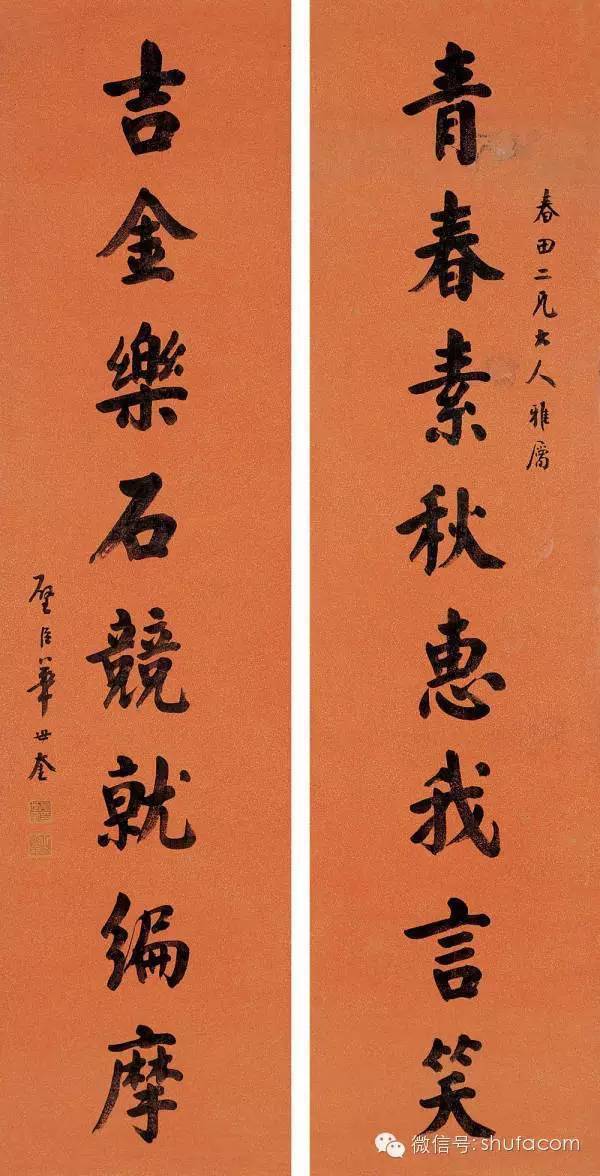 春田二兄大人雅屬
青春素秋惠我言笑
吉金樂石競就編摩
璧臣華世奎
微信号: shufacom